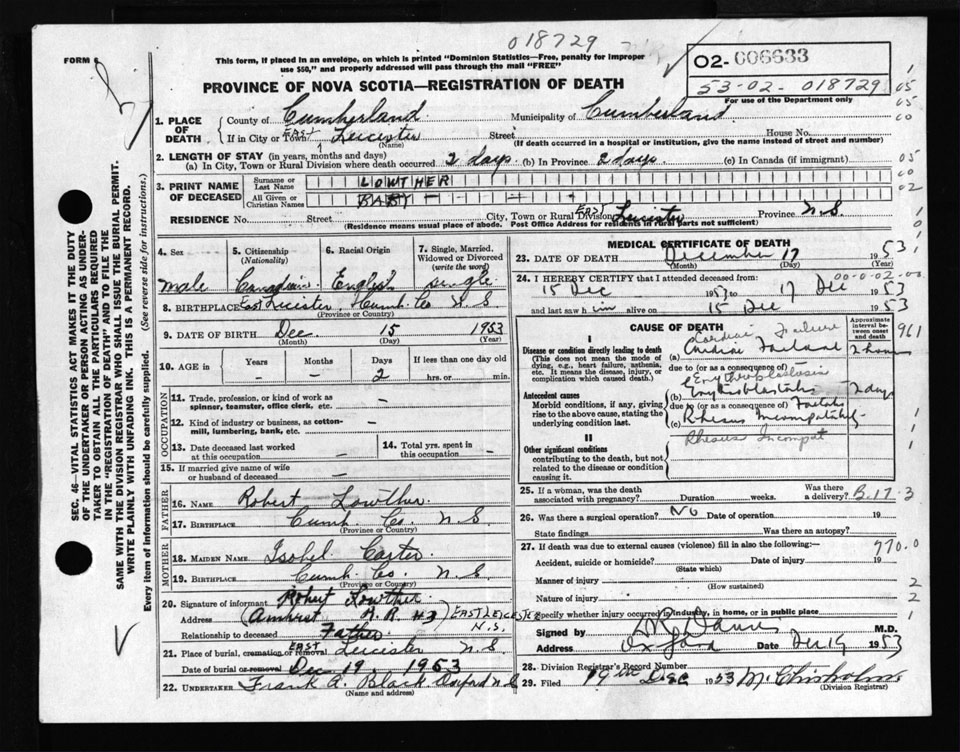 018729
FORM 6
This form, if placed in an envelope, on which is printed "Dominion Statistics—Free, penalty for improper
use $50," and properly addressed will pass through the mail "FREE"
O2- 006633
53-02- 018729
For use of the Department only
PROVINCE OF NOVA SCOTIA—REGISTRATION OF DEATH
1. PLACE OF DEATH
County of Cumberland Municipality of Cumberland
If in City or Town East Leicester (Name) Street House No.
(If death occurred in a hospital or institution, give the name instead of street and number)
2. LENGTH OF STAY (in years, months and days)
(a) In City, Town or Rural Division where death occurred 2 days (b) In Province 2 days (c) In Canada (if immigrant)
3. PRINT NAME OF DECEASED
Surname or Last Name LOWTHER
All Given or Christian Names BABY
RESIDENCE No. Street City, Town or Rural Division East Leicester Province N.S.
(Residence means usual place of abode. Post Office Address for residents in rural parts not sufficient)
4. Sex male
5. Citizenship (Nationality) Canadian
6. Racial Origin English
7. Single, Married, Widowed or Divorced (write the word) single
8. BIRTHPLACE East Leicester, Cumb. Co N S
(Province or Country)
9. DATE OF BIRTH Dec 15 1953
(Month) (Day) (Year)
10. AGE in Years – Months – Days 2 If less than one day old hrs. or min.
OCCUPATION
11. Trade, profession, or kind of work as spinner, teamster, office clerk, etc. –
12. Kind of industry or business, as cotton-mill, lumbering, bank, etc. –
13. Date deceased last worked at this occupation –
14. Total yrs. spent in this occupation –
15. If married give name of wife or husband of deceased –
FATHER
16. NAME Robert Lowther
17. BIRTHPLACE Cumb. Co. N S
(Province or Country)
MOTHER
18. MAIDEN NAME Isobel Carter
19. BIRTHPLACE Cumb. Co. N. S
(Province or Country)
20. Signature of informant Robert Lowther
Address Amherst R. R. #3 EAST LEICESTER N.S.
Relationship to deceased Father
21. Place of burial, cremation or removal EAST Leicester N S
Date of burial or removal Dec 19. 1953
22. UNDERTAKER Frank A. Black Oxford N S
(Name and address)
MEDICAL CERTIFICATE OF DEATH
23. DATE OF DEATH December 17 1953
(Month) (Day) (Year)
00-0-02-00
24. I HEREBY CERTIFY that I attended deceased from:
15 Dec 1953 to 17 Dec 1953
and last saw him alive on 15 Dec 1953
CAUSE OF DEATH
Approximate interval between onset and death
961
I
Disease or condition directly leading to death
(This does not mean the mode of dying, e.g., heart failure, asthenia, etc. It means the disease, injury, or complication which caused death.)
Cardiac Failure
(a) Cardiac Failure 2 hours
due to (or as a consequence of)
Erythroblastosis
Antecedent causes
Morbid conditions, if any, giving rise to the above cause, stating the underlying condition last.
(b) Erythroblastosis Foetalis 2 days
due to (or as a consequence of)
(c) Rhesus Incompatibility
II
Other significant conditions
contributing to the death, but not related to the disease or condition causing it.
Rhesus Incompat
25. If a woman, was the death associated with pregnancy? Duration weeks. Was there a delivery? B.17.3
26. Was there a surgical operation? No Date of operation 19
State findings Was there an autopsy?
27. If death was due to external causes (violence) fill in also the following: 770.0
Accident, suicide or homicide? Date of injury 19
(State which)
Manner of injury
(How sustained)
Nature of injury
Specify whether injury occurred in industry, in home, or in public place
Signed by M.D.
Address Oxford Date Dec 19 1953
28. Division Registrar's Record Number
29. Filed 19th Dec 1953 M. Chisholm
(Division Registrar)
SEC. 46—VITAL STATISTICS ACT MAKES IT THE DUTY
OF THE UNDERTAKER OR PERSON ACTING AS UNDER-
TAKER TO OBTAIN ALL THE PARTICULARS REQUIRED
IN THE "REGISTRATION OF DEATH" AND TO FILE THE
SAME WITH THE DIVISION REGISTRAR WHO SHALL ISSUE THE BURIAL PERMIT.
WRITE PLAINLY WITH UNFADING INK. THIS IS A PERMANENT RECORD.
Every item of information should be carefully supplied. (See reverse side for instructions.)